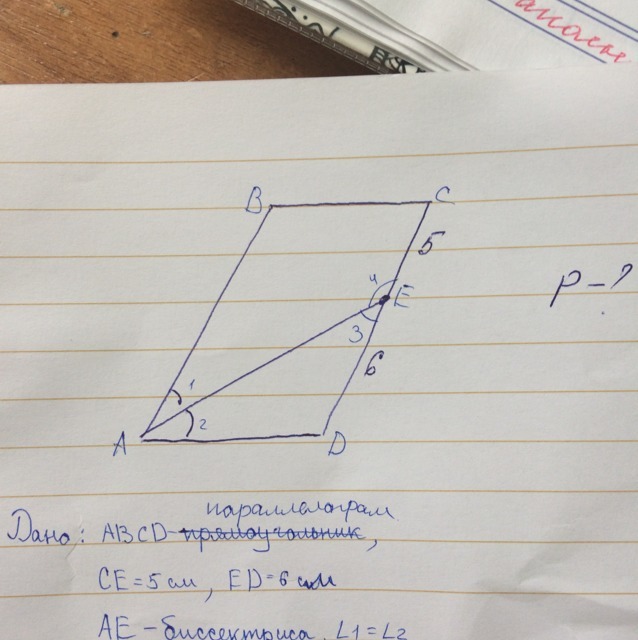 B C
5
4 E
P - ?
3
6
1
2
A D
параллелограм
Дано: ABCD- прямоугольник,
CE=5 см, ED=6 см
AE - биссектриса, L1=L2